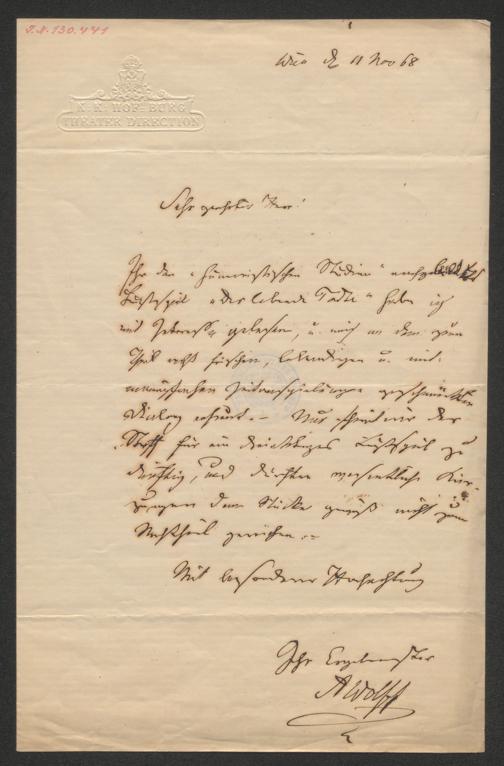 I.N. 130.441
Wien d. 11 Nov 68
K. K. HOF-BURG
THEATER DIRECTION
Sehr geehrter Herr!
Ihr den "humoristischen Studien" nachgebildetes
Lustspiel "der lebende Todte" habe ich
mit Interesse gelesen, u. mich an dem zum
Theil recht frischen, lebendigen u. mit
Zeitanspielungen geschmückten
Dialog erfreut. – Nur scheint mir der
Stoff für ein dreiaktiges Lustspiel zu
dürftig, und dürften wesentliche Kür-
zungen dem Stücke gewiß nicht zum
Nachtheil gereichen. –
Mit besonderer Hochachtung
Ihr Ergebenster
AWolff